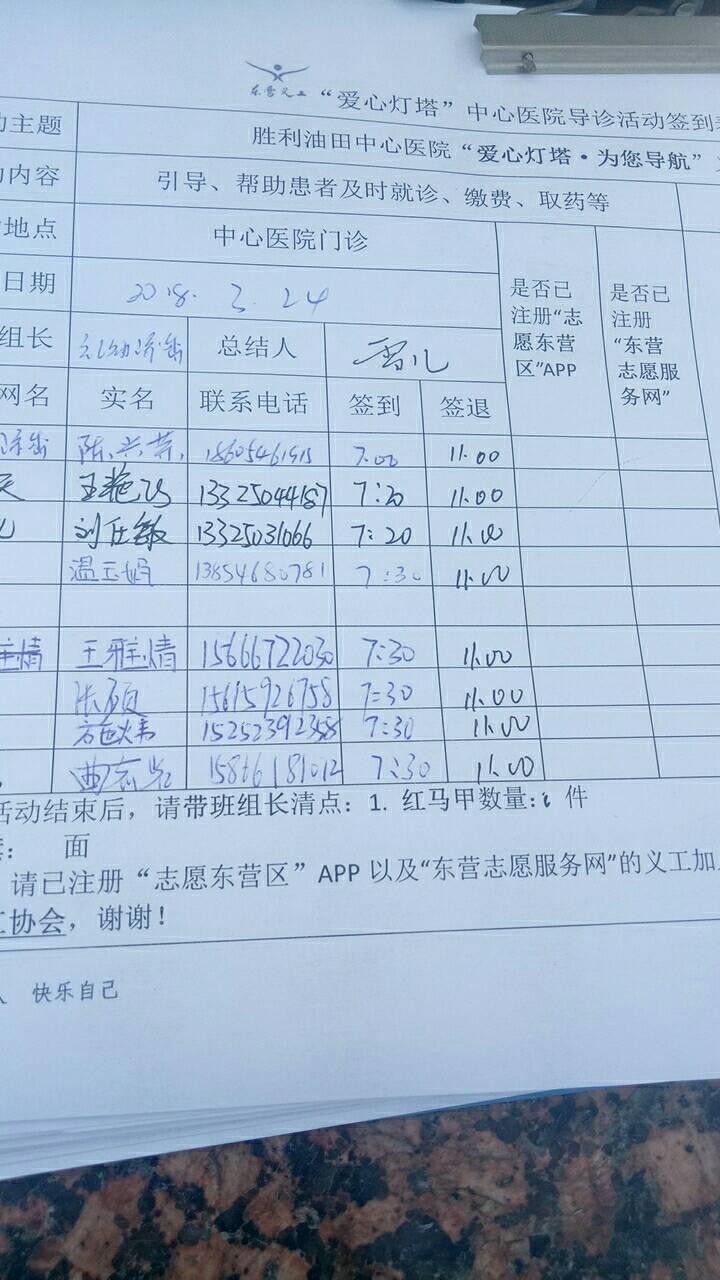 东营义工 “爱心灯塔”中心医院导诊活动签到
主题 胜利油田中心医院“爱心灯塔·为您导航”
内容 引导、帮助患者及时就诊、缴费、取药等
地点 中心医院门诊
日期 2018.3.24 是否已注册“志愿东营区”APP 是否已注册“东营志愿服务网”
组长 总结人 雪儿
网名 实名 联系电话 签到 签退
陈兴芬 18605461515 7:00 11:00
王艳 13325044187 7:20 11:00
刘仕敏 13325031066 7:20 11:00
温玉娟 13854680781 7:30 11:00
王雅倩 15666722030 7:30 11:00
张硕 15615926758 7:30 11:00
15252392358 7:30 11:00
曲 15866181012 7:30 11:00
活动结束后，请带班组长清点：1. 红马甲数量: 件
： 面
请已注册“志愿东营区”APP 以及“东营志愿服务网”的义工加
工协会，谢谢！
快乐自己